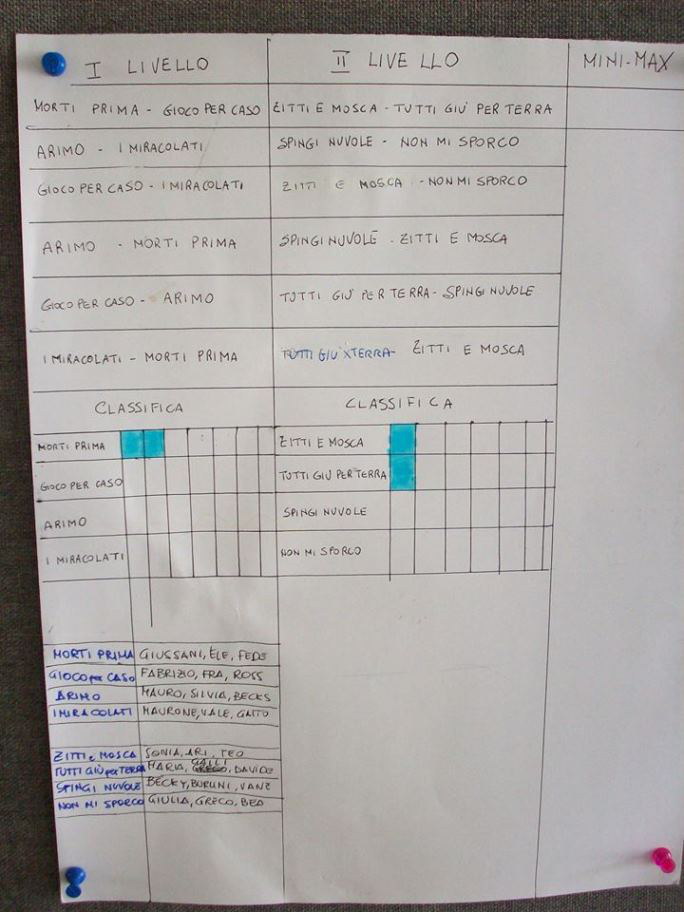 I LIVELLO
II LIVELLO
MINI-MAX
MORTI PRIMA - GIOCO PER CASO
ZITTI E MOSCA - TUTTI GIU' PER TERRA
ARIMO - I MIRACOLATI
SPINGI NUVOLE - NON MI SPORCO
GIOCO PER CASO - I MIRACOLATI
ZITTI E MOSCA - NON MI SPORCO
ARIMO - MORTI PRIMA
SPINGI NUVOLE - ZITTI E MOSCA
GIOCO PER CASO - ARIMO
TUTTI GIU' PER TERRA - SPINGI NUVOLE
I MIRACOLATI - MORTI PRIMA
TUTTI GIU' X TERRA - ZITTI E MOSCA
CLASSIFICA
CLASSIFICA
MORTI PRIMA
GIOCO PER CASO
ARIMO
I MIRACOLATI
ZITTI E MOSCA
TUTTI GIU' PER TERRA
SPINGI NUVOLE
NON MI SPORCO
MORTI PRIMA GIUSSANI, ELE, FEDE
GIOCO per CASO FABRIZIO, FRA, ROSS
ARIMO MAURO, SILVIA, BECKS
I MIRACOLATI MAURONE, VALE, GAITO
ZITTI e MOSCA SONIA, ARI, TEO
TUTTI GIÙ per TERRA MARIA, GALLI, DAVIDE
SPINGI NUVOLE BECKY, BURUNI, VANE
NON MI SPORCO GIULIA, GRECO, BEA